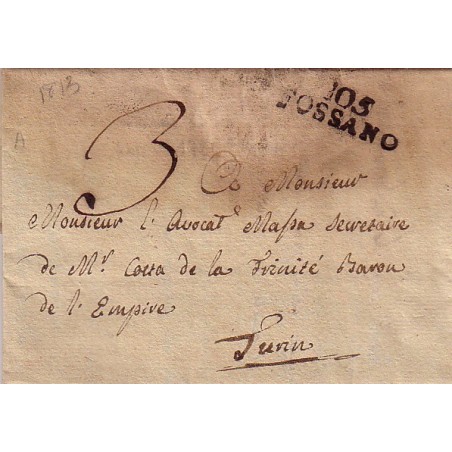 1813
105
FOSSANO
A
3
A Monsieur
Monsieur l'Avocat Massa Secretaire
de Mr. Costa de la Trinité Baron
de l'Empire
Turin